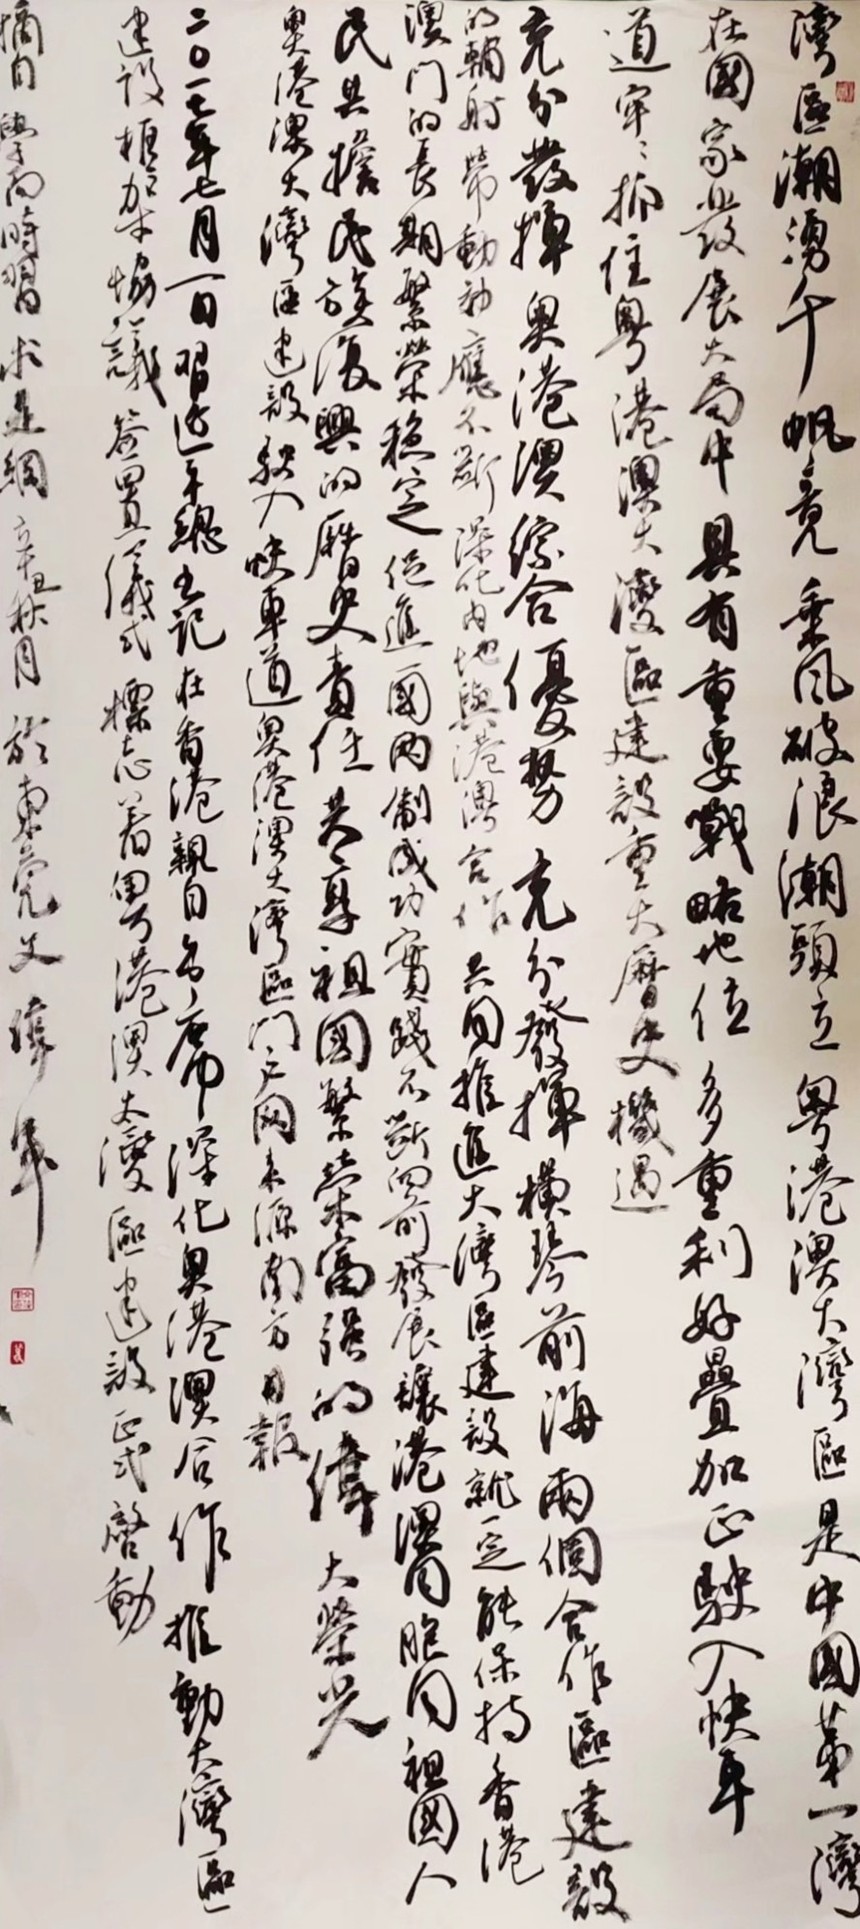 灣區潮湧千帆竟乘风破浪潮頭立粤港澳大灣區是中國第一灣
在國家發展大局中具有重要戰略地位多重利好疊加正駛入快车
道牢牢抓住粤港澳大灣區建設重大曆史機遇
充分發揮粤港澳综合優势充分發揮横琴前海兩個合作區建設
的輔射帶動効應不斷深化内地與港澳合作共同推進大灣區建設就一定能保持香港
澳门的長期繁榮穩定促進國两制成功實踐不斷向前發展讓港澳同胞同祖國人
民共擔民族復興的曆史責任共享祖國繁榮富强的偉大榮光
粤港澳大灣區建設駛入快車道粤港澳大灣區门户网来源南方日報
二〇一七年七月一日習近平總书记在香港親自出席深化粤港澳合作推動大灣區
建設框架協議簽署儀式標志着粤港澳大灣區建設正式啓動
摘自學而時習求是網辛丑秋月於東莞文偉年